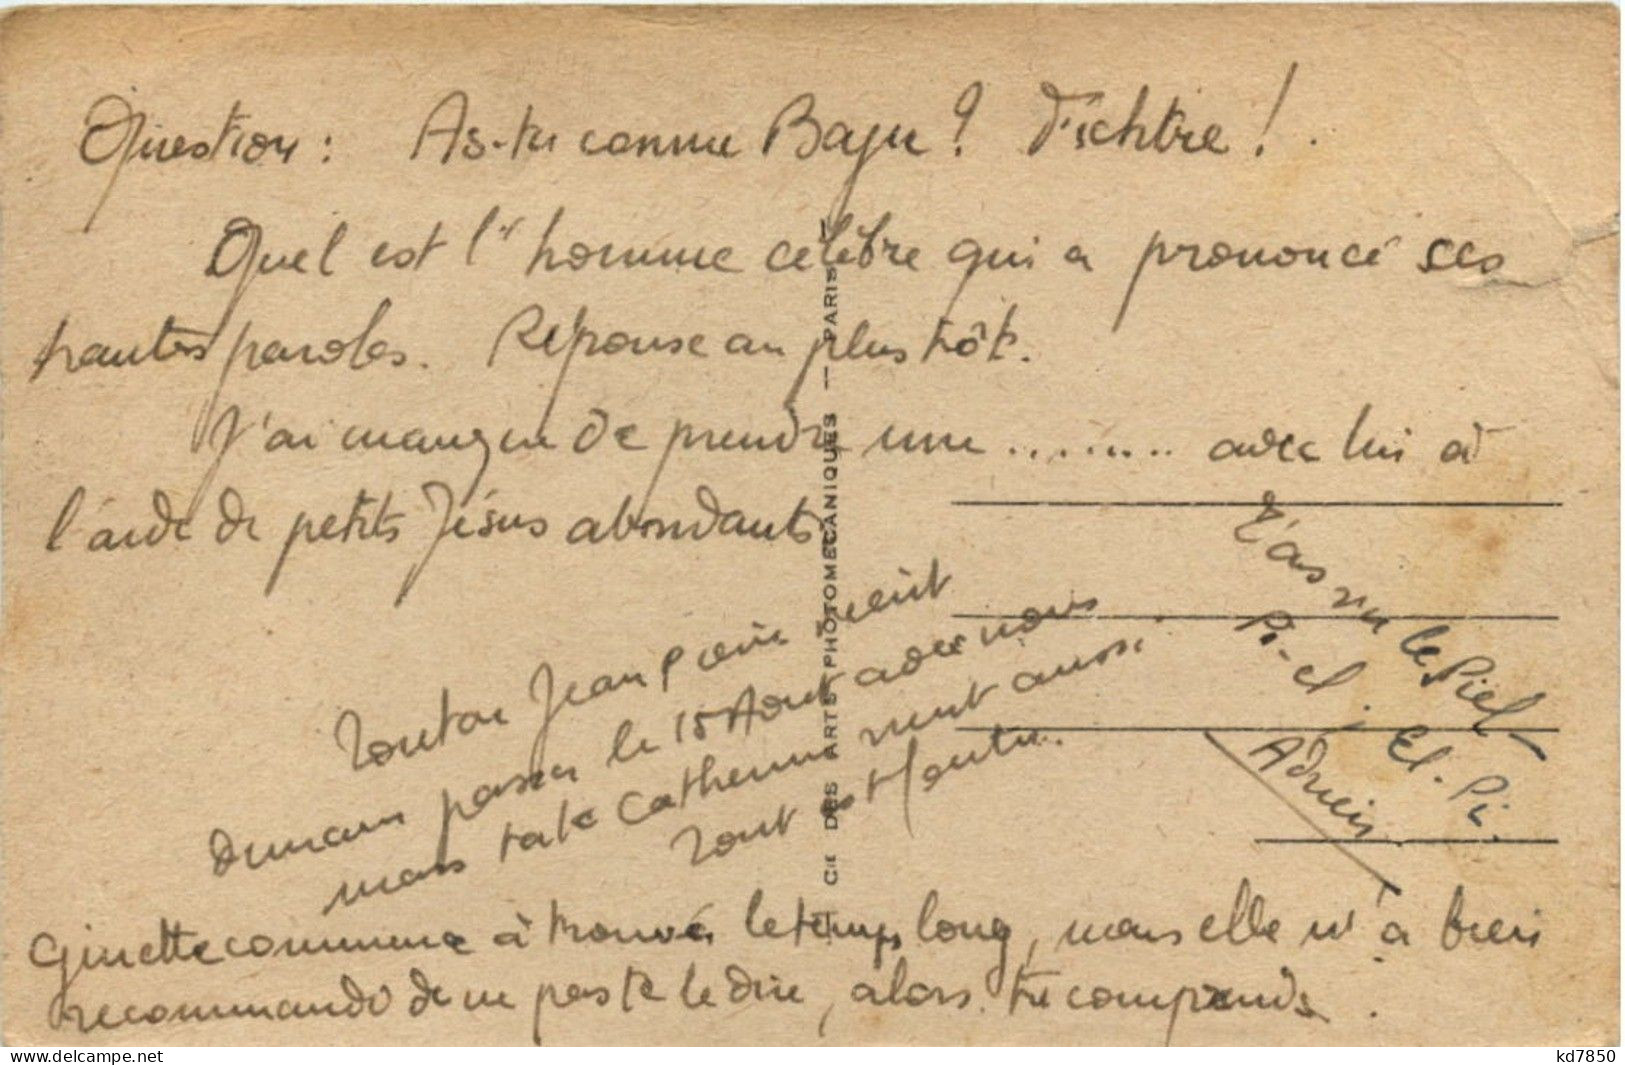 Question : As-tu connu Baju ? Fichtre ! .
Quel est l'homme célèbre qui a prononcé ses
hautes paroles. Réponse au plus tôt.
J'ai manqué de prendre une ......... avec lui à
l'aide de petits Jésus abondants
Tonton Jean pierre vient
demain passer le 15 Août avec nous
mais tate Catherine vient aussi.
Tout est foutu.
T'as vu le Piel-
Pi-el ; El. Pi.
Adrien
Ginette commence à trouver le temps long, mais elle m'a bien
recommandé de ne pas te le dire, alors tu comprends .
CIE DES ARTS PHOTOMECANIQUES — PARIS
delcampe.net
kd7850